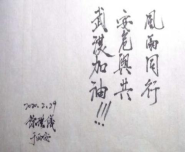 風雨同行
安危與共
武漢加油!!!
2020.2.29